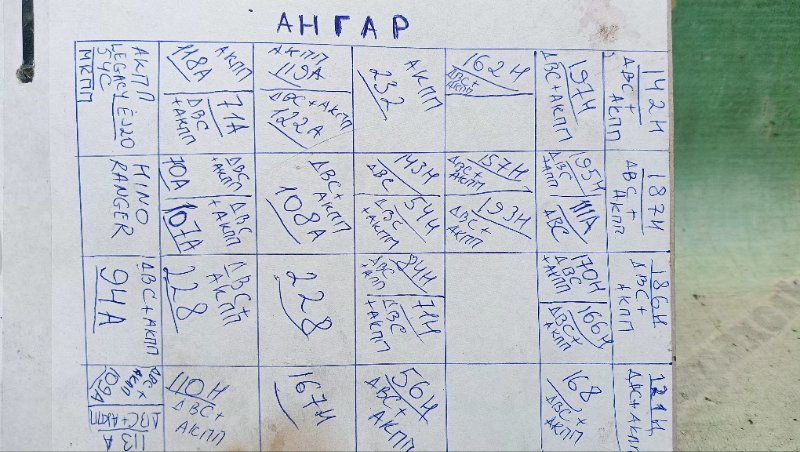 АНГАР
АКПП
LEGACY EJ20
54C
МКПП
АКПП
118А
71А
ДВС
+АКПП
АКПП
119А
ДВС+АКПП
122А
АКПП
232
162Н
ДВС+
АКПП
197Н
ДВС+АКПП
142Н
ДВС+
АКПП
HINO
RANGER
ДВС
+АКПП
70А
ДВС
+АКПП
107А
ДВС+
АКПП
108А
143Н
ДВС
54Н
ДВС
+АКПП
157Н
ДВС+
АКПП
193Н
ДВС+
АКПП
195Н
ДВС
+АКПП
111А
ДВС
187Н
ДВС+
АКПП
ДВС+АКПП
94А
ДВС+
АКПП
228
228
ДВС
71Н
ДВС
+АКПП
170Н
ДВС
+АКПП
166Н
ДВС+
АКПП
186Н
ДВС+
АКПП
ДВС
+
АКПП
109А
ДВС+АКПП
113А
110Н
ДВС+
АКПП
167Н
56Н
ДВС+
АКПП
168
ДВС+
АКПП
ДВС+АКПП